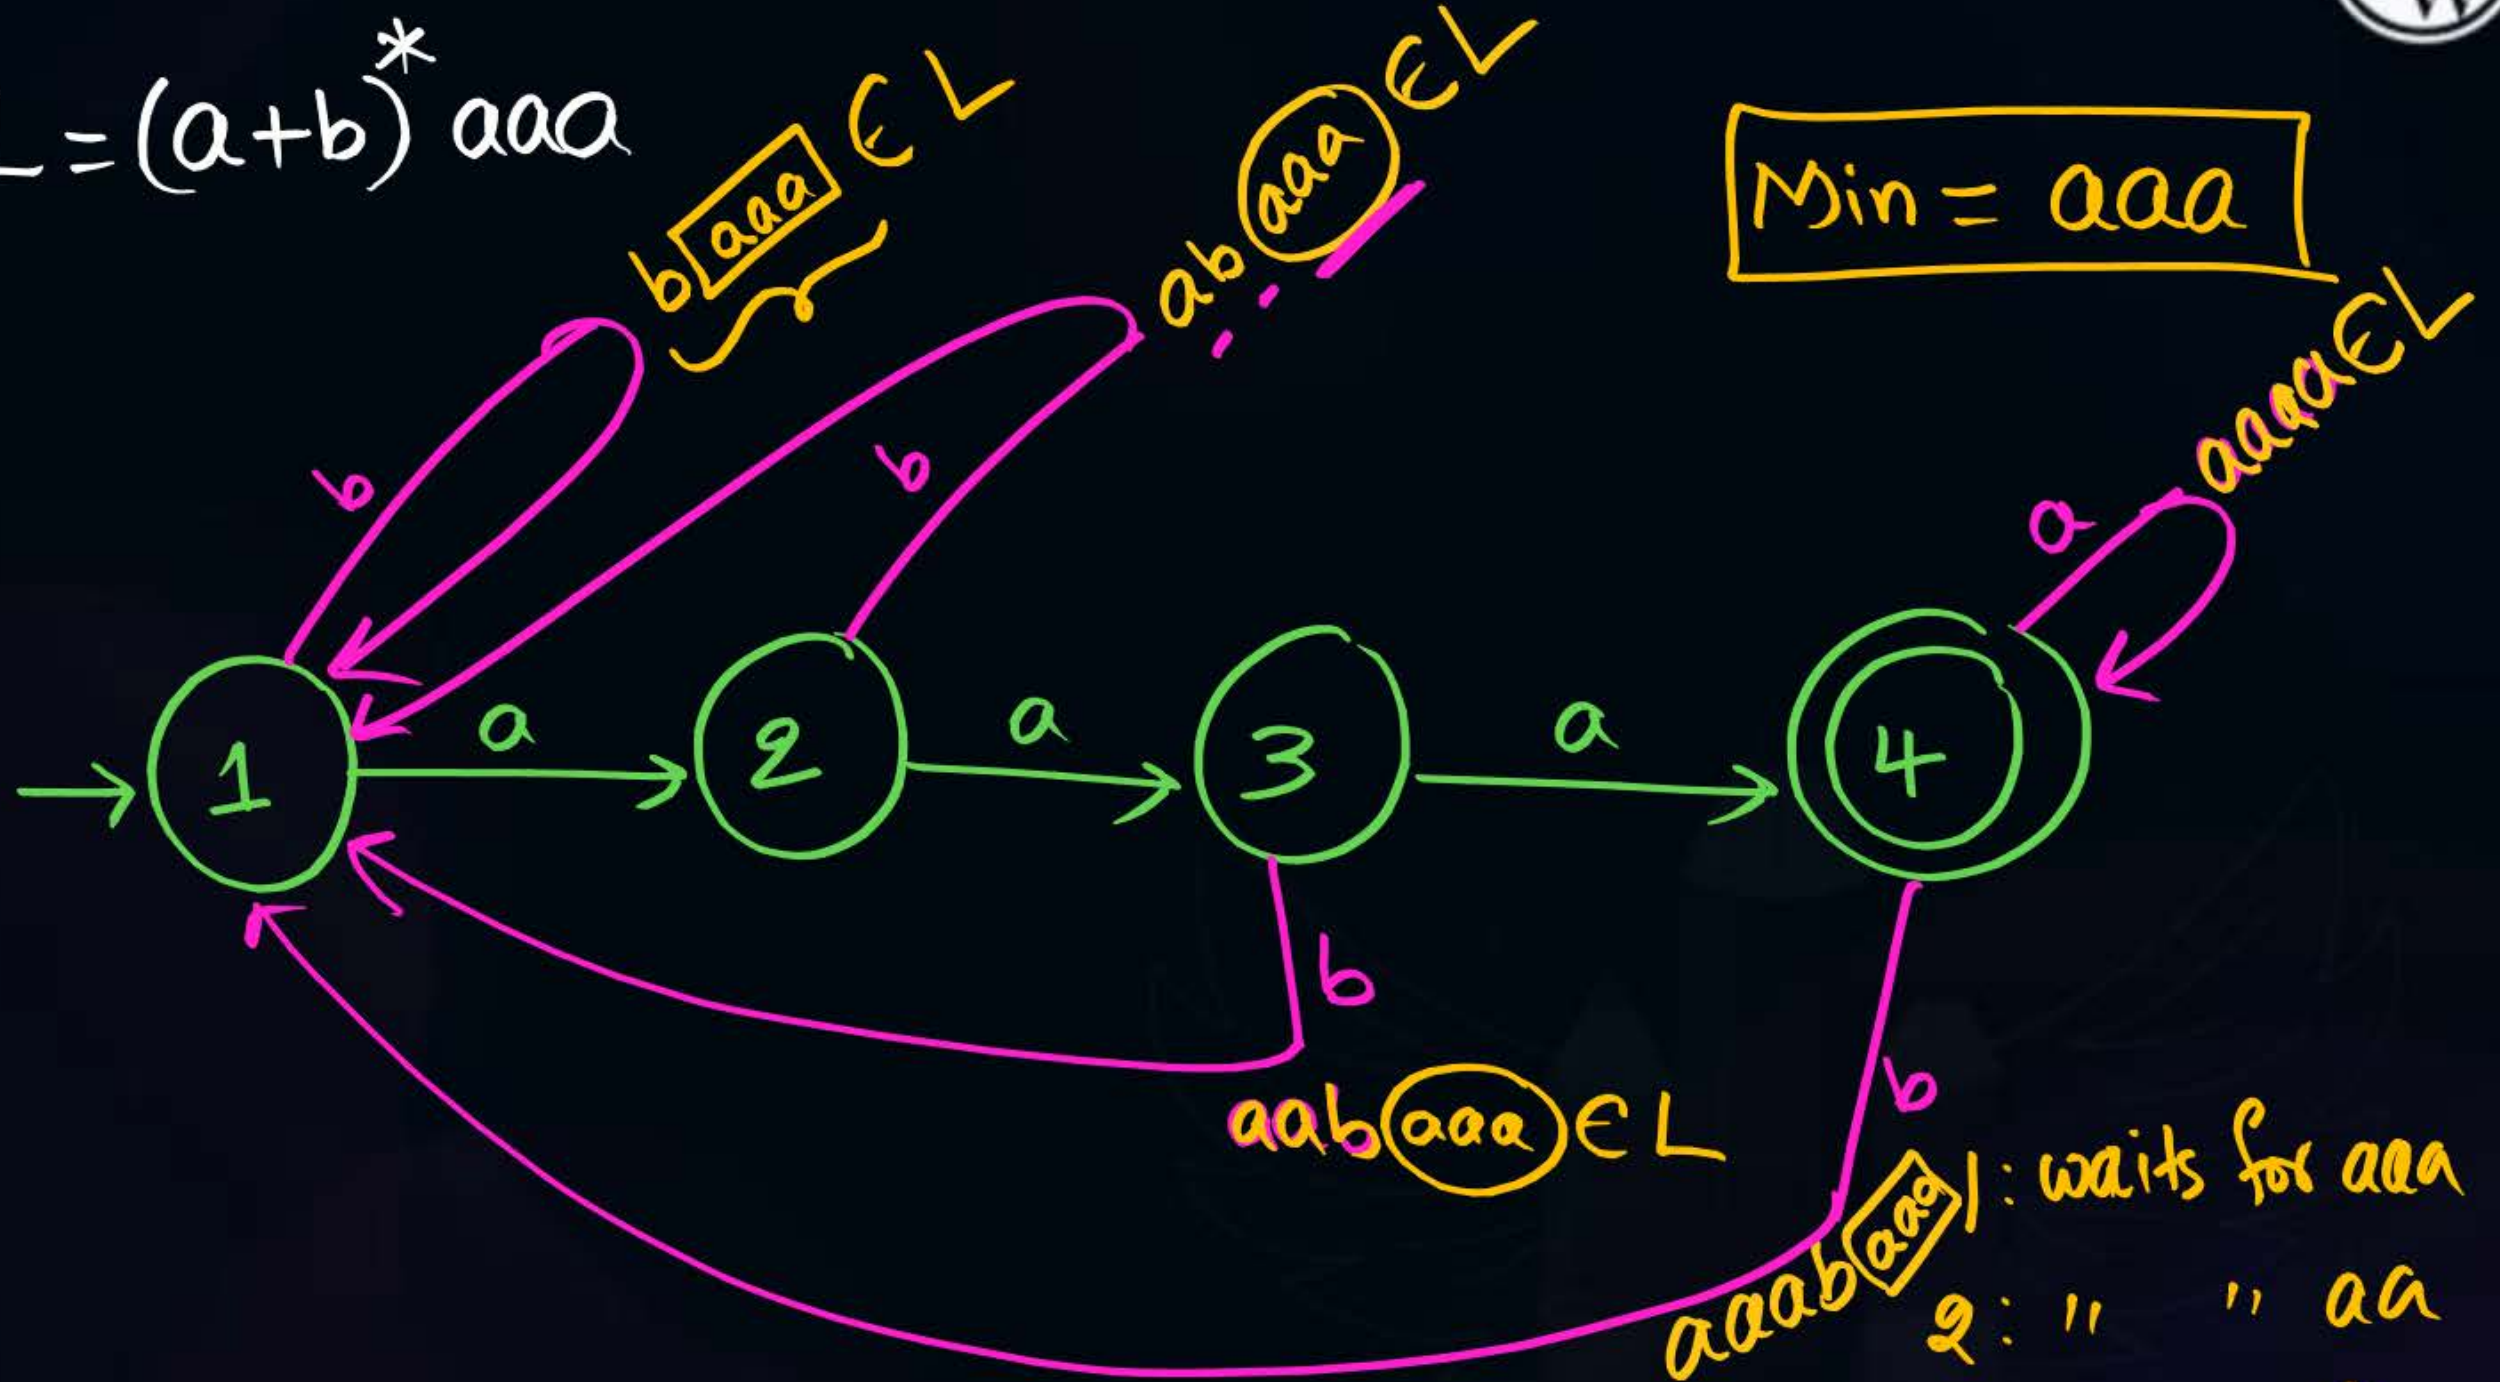 L = (a+b)* aaa
baaa ∈ L
abaaa ∈ L
Min = aaa
aaaa ∈ L
b
b
a
1
a
2
a
3
a
4
b
b
aabaaa ∈ L
aaabaaa
1: waits for aaa
2: " " aa